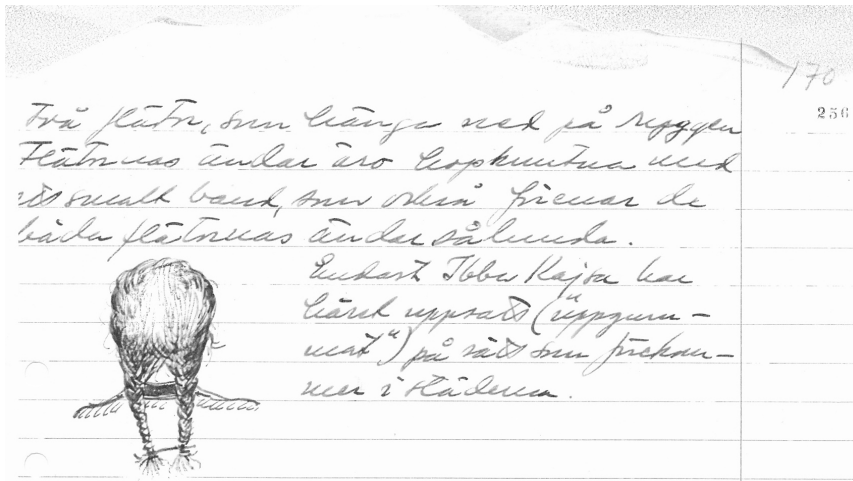 170
256
två flätor, som hänga ned på ryggen
Flätornas ändar äro hopknutna med
ett smalt band, som också förenar de
båda flätornas ändar sålunda.
Endast Ebba Kajsa har
håret uppsatt ("uppgum-
mat") på sätt som förekom-
mer i städerna.